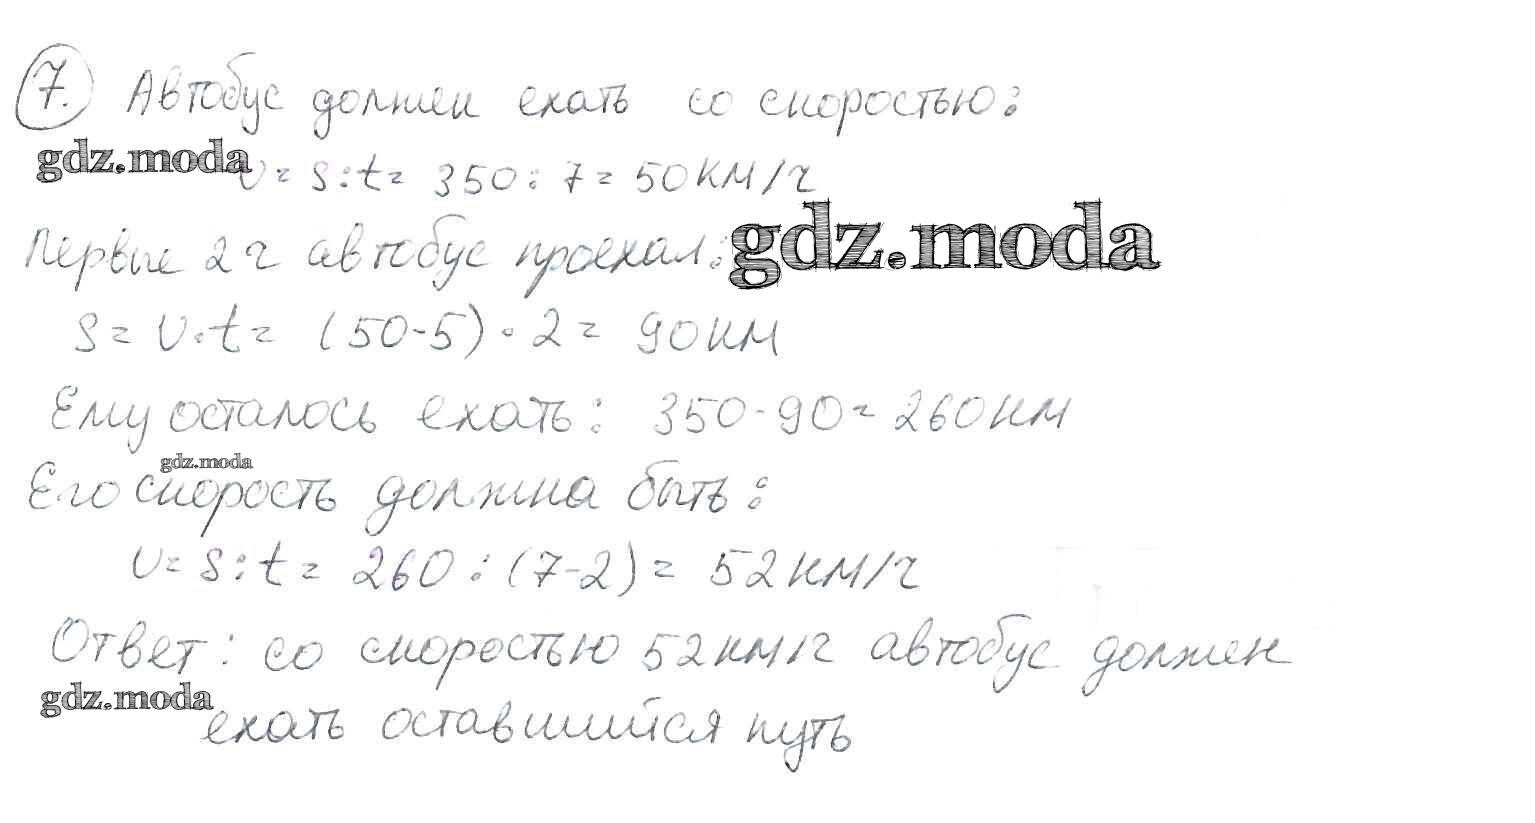 7. Автобус должен ехать со скоростью:
gdz.moda
v = s : t = 350 : 7 = 50 км/ч
gdz.moda
Первые 2 ч автобус проехал:
s = v · t = (50 - 5) · 2 = 90 км
Ему осталось ехать: 350 - 90 = 260 км
gdz.moda
Его скорость должна быть:
v = s : t = 260 : (7 - 2) = 52 км/ч
Ответ: со скоростью 52 км/ч автобус должен
gdz.moda
ехать оставшийся путь